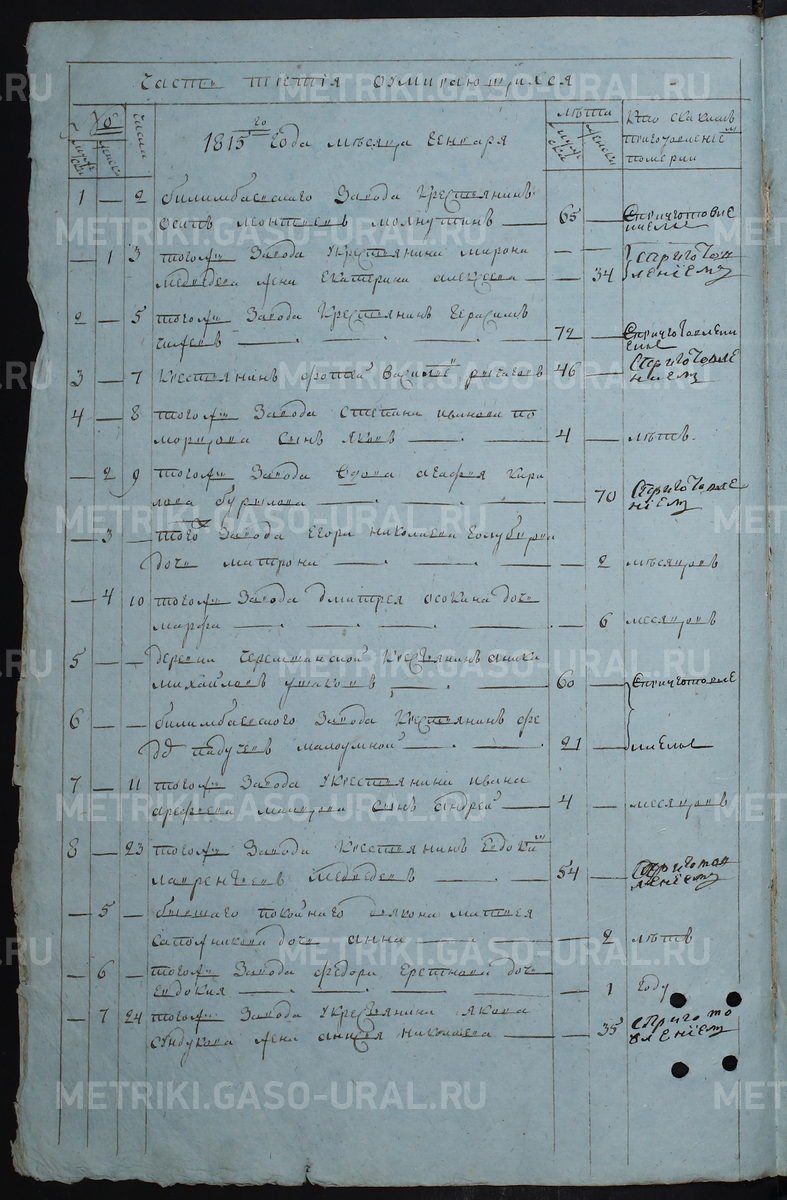 Часть третія оумирающихся
№ числа 1815го года мѣсяца генваря лѣта Кто с какимъ
мужеска женска мужеска женска приготовленіем
померли
1 — 2 билимбаевского Завода Крестьянинъ
Осипъ леонтьевъ — 65 — Сприготовле
ніемъ
— 1 3 тогожъ Завода Крестьянина мирона — —
медведева жена Екатерина алексеева — — 34 сприготов
леніемъ
2 — 5 тогожъ Завода Крестьянинъ Герасимъ
— 72 — Сприготовлени
емъ
3 — 7 Крестьянинъ василевъ 46 — Сприготовле
ніемъ
4 — 8 тогожъ Завода степана иванова по
морцова сынъ яковъ — 4 — лѣтъ
— 2 9 тогожъ Завода вдова агафия кири
лова бурылова — — 70 Сприготовле
ніемъ
— 3 — тогожъ Завода Егора николаева
дочь матрона — — 2 мѣсяцовъ
— 4 10 тогожъ Завода дмитрея осокина дочь
марфа — — 6 месяцовъ
5 — — деревни черемшанской Крестьянинъ аника
михайловъ ушаковъ — 60 — Сприготовле
6 — — билимбаевского Завода Крестьянинъ фе
малоумной — 21 — ніемъ
7 — 11 тогожъ Завода Крестьянина ивана
арефьева сынъ андрей — 4 — месяцовъ
8 — 23 тогожъ Завода Крестьянинъ Евдоким
лаврентьевъ медведевъ — 54 — Сприготов
леніемъ
— 5 — бывшаго покойнаго дьякона матвея
сапожникова дочь анна — — 2 лѣтъ
— 6 — тогожъ Завода федора дочь
Евдокия — — 1 году
— 7 24 тогожъ Завода Крестьянина якова
сундукова жена анисия николаева — — 35 спригото
вленіемъ
METRIKI.GASO-URAL.RU